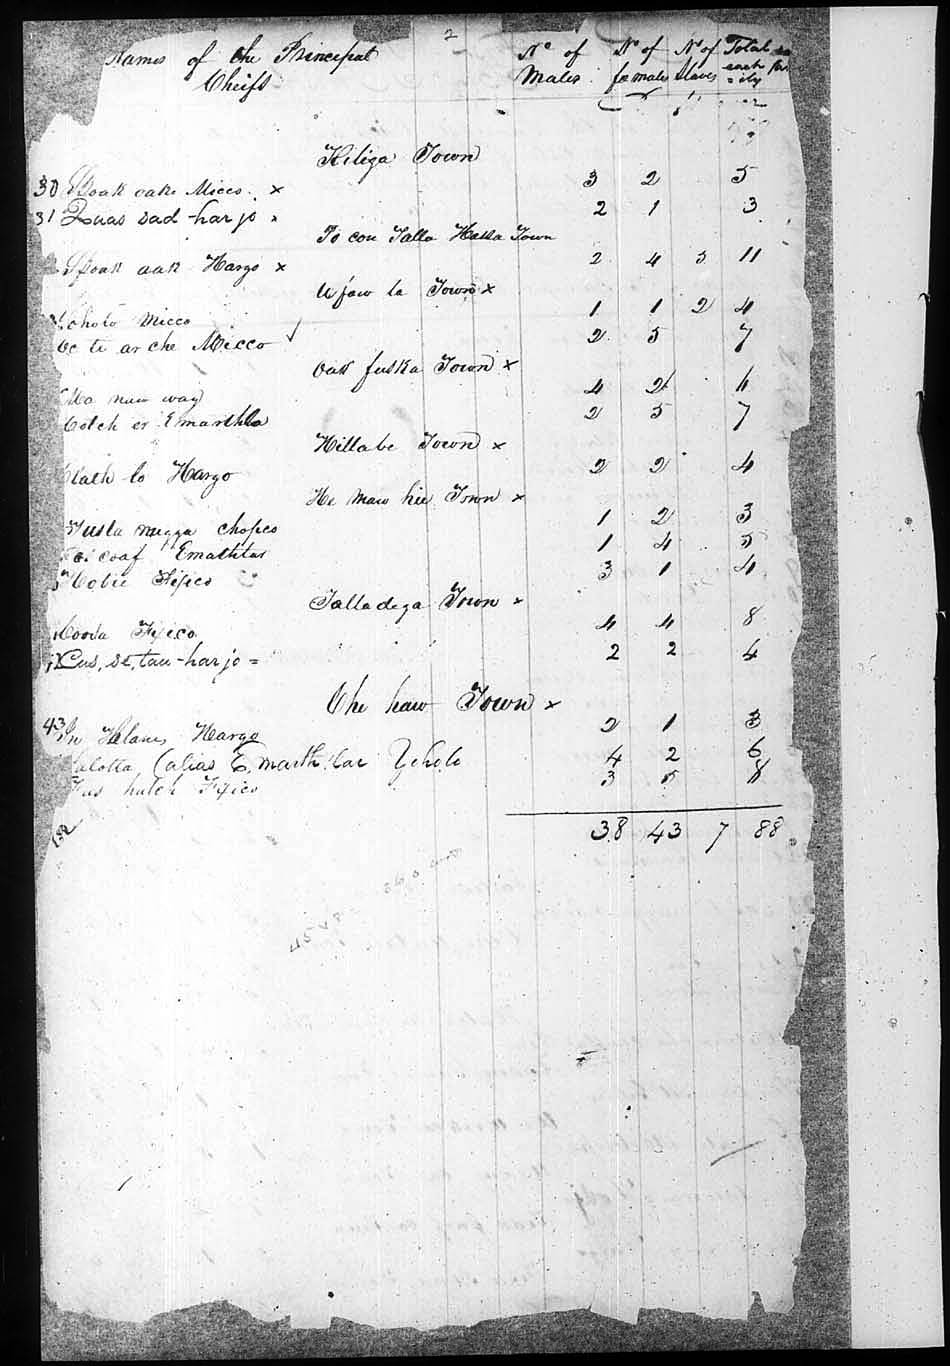 2
Names of the Principal Cheifs No of Males No of females No of Slaves Total in each family
Kiliga Town
30 Spoak oake Micco x 3 2 5
31 Quas sad harjo 2 1 3
To con Talla Hassa Town
Spoak oak Hargo x 2 4 5 11
Ufaw la Town x
Yoholo Micco 1 1 2 4
Oc ti ar che Micco 2 5 7
Oak fuska Town x
naw way 4 2 6
Cotch er Emarthla 2 5 7
Hillabe Town x
Hargo 2 2 4
He maw hee Town x
Tusta nugga chopco 1 2 3
coaf Emathlas 1 4 5
Hobie Fixico 3 1 4
Talladega Town x
Coosa Fixico 4 4 8
Cus, se, tau-harjo = 2 2 4
Che haw Town x
43 Hargo 2 1 3
(alias E, marth lar Yoholo 4 2 6
hutch Fixico 3 5 8
38 43 7 88